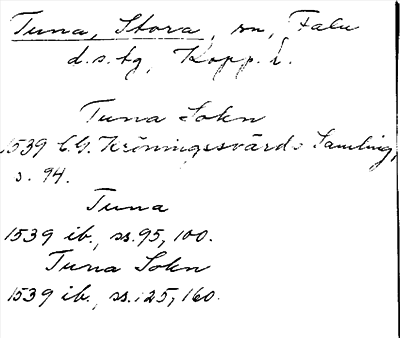 Tuna, Stora, sn, Falu
d.s.tg, Kopp. l.
Tuna Sokn
1539 C.G. Kröningssvärds Samling,
s. 94.
Tuna
1539 ib., ss. 95, 100.
Tuna Sokn
1539 ib., ss. 125, 160.